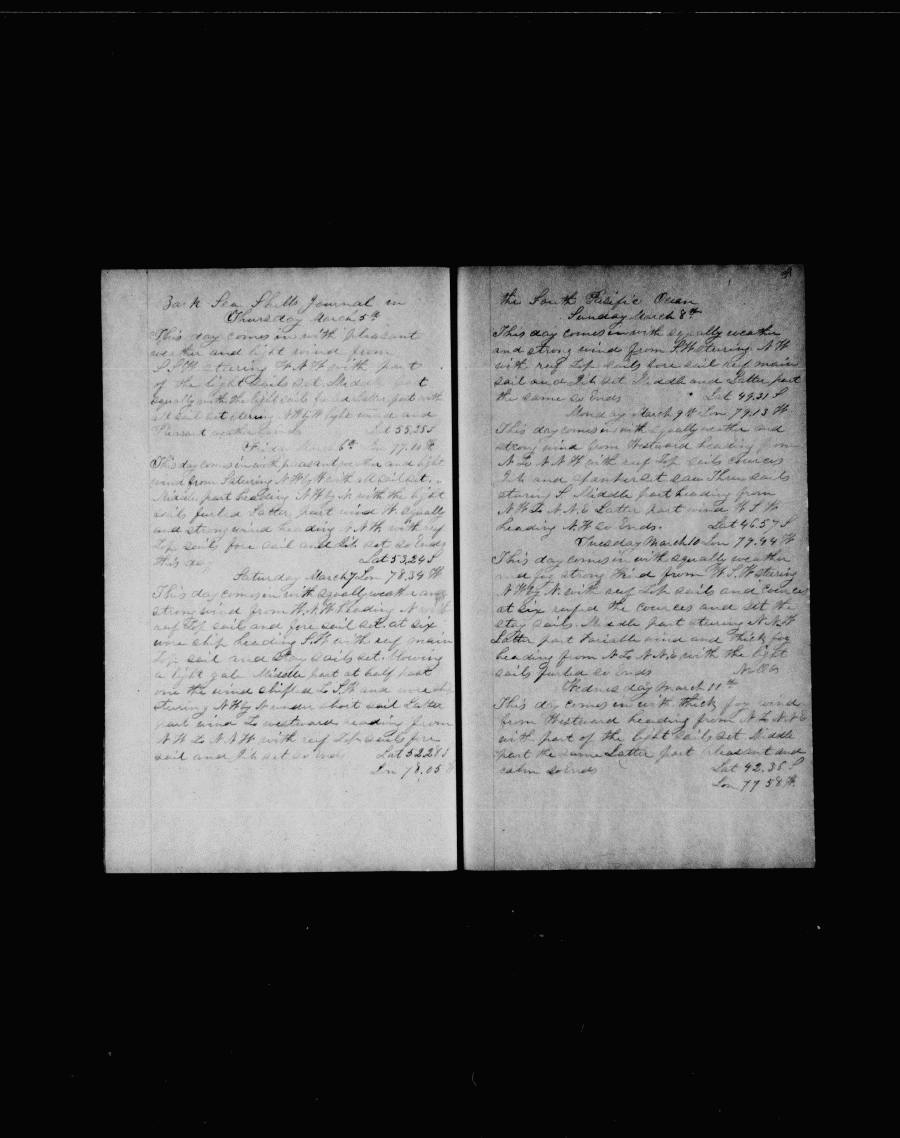 Bark Sea Shells Journal in
Thursday March 5th
This day comes in with pleasant
weather and light wind from
S.S.W stering W.N.W with part
of the light sails set Middle part
squally with the light sails furled Latter part with
all sail set stering NW by W light wind and
Pleasant weather so ends Lat 55,25 S
Friday March 6th Lon 77.10 W
This day comes in with pleasant weather and light
wind from S stering NW by W with all sail set.
Middle part heading NW by N with the light
sails furled Latter part wind W. squally
and strong wind heading N.N.W. with reef
Top sails fore sail and Jib set so Ends
this day Lat 53,24 S
Saturday March 7 Lon 78.34 W
This day comes in with squally weather and
strong wind from W.N.W heading N with
reef Top sail and fore sail set. at six
wore ship heading S.W with reef main
Top sail and Stay sails set. Blowing
a light gale Middle part at half past
one the wind shifted to S.W and wore ship
stering NW by N under short sail Latter
part wind to westward heading from
N W to N.N.W with reef Top sails fore
sail and jib set so Ends Lat 52.28 S
Lon 78.05 W
4
the South Pasific Ocean
Sunday March 8th
This day comes in with squally weather
and strong wind from S.W stering N.W
with reef Top sails fore sail reef main
sail and Jib set Middle and Latter part
the same so Ends Lat 49.31 S
Monday March 9th Lon 79.13 W
This day comes in with squally weather and
strong wind from Westward heading from
N to N.N.W with reef Top sails cources
Jib and spanker set saw Three sails
stering S. Middle part heading from
N.W to N.N.E Latter part wind W.S.W
heading N.W so Ends. Lat 46.57 S
Tuesday March 10 Lon 79.44 W
This day comes in with squally weather
and fog strong wind from W.S.W stering
NW by N. with reef Top sails and cources
at six reefed the cources and set the
stay sails. Middle part stering N.N.W
Latter part Variable wind and thick fog
heading from N to N.N.E with the light
sails furled so ends No Obs
Wednesday March 11th
This day comes in with thick fog wind
from Westward heading from N to N.N.E
with part of the light sails set Middle
part the same Latter part pleasant and
calm so Ends Lat 42.36 S
Lon 77 58 W.